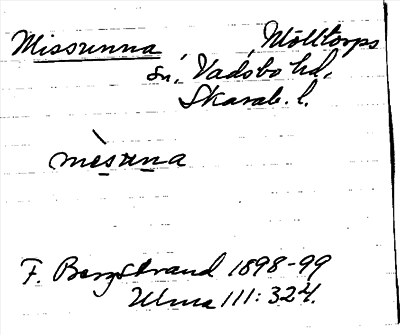 Missunna Mölltorps
sn, Vadsbo hd,
Skarab. l.
mèsuna
F. Bergstrand 1898-99
Ulma 111: 324.